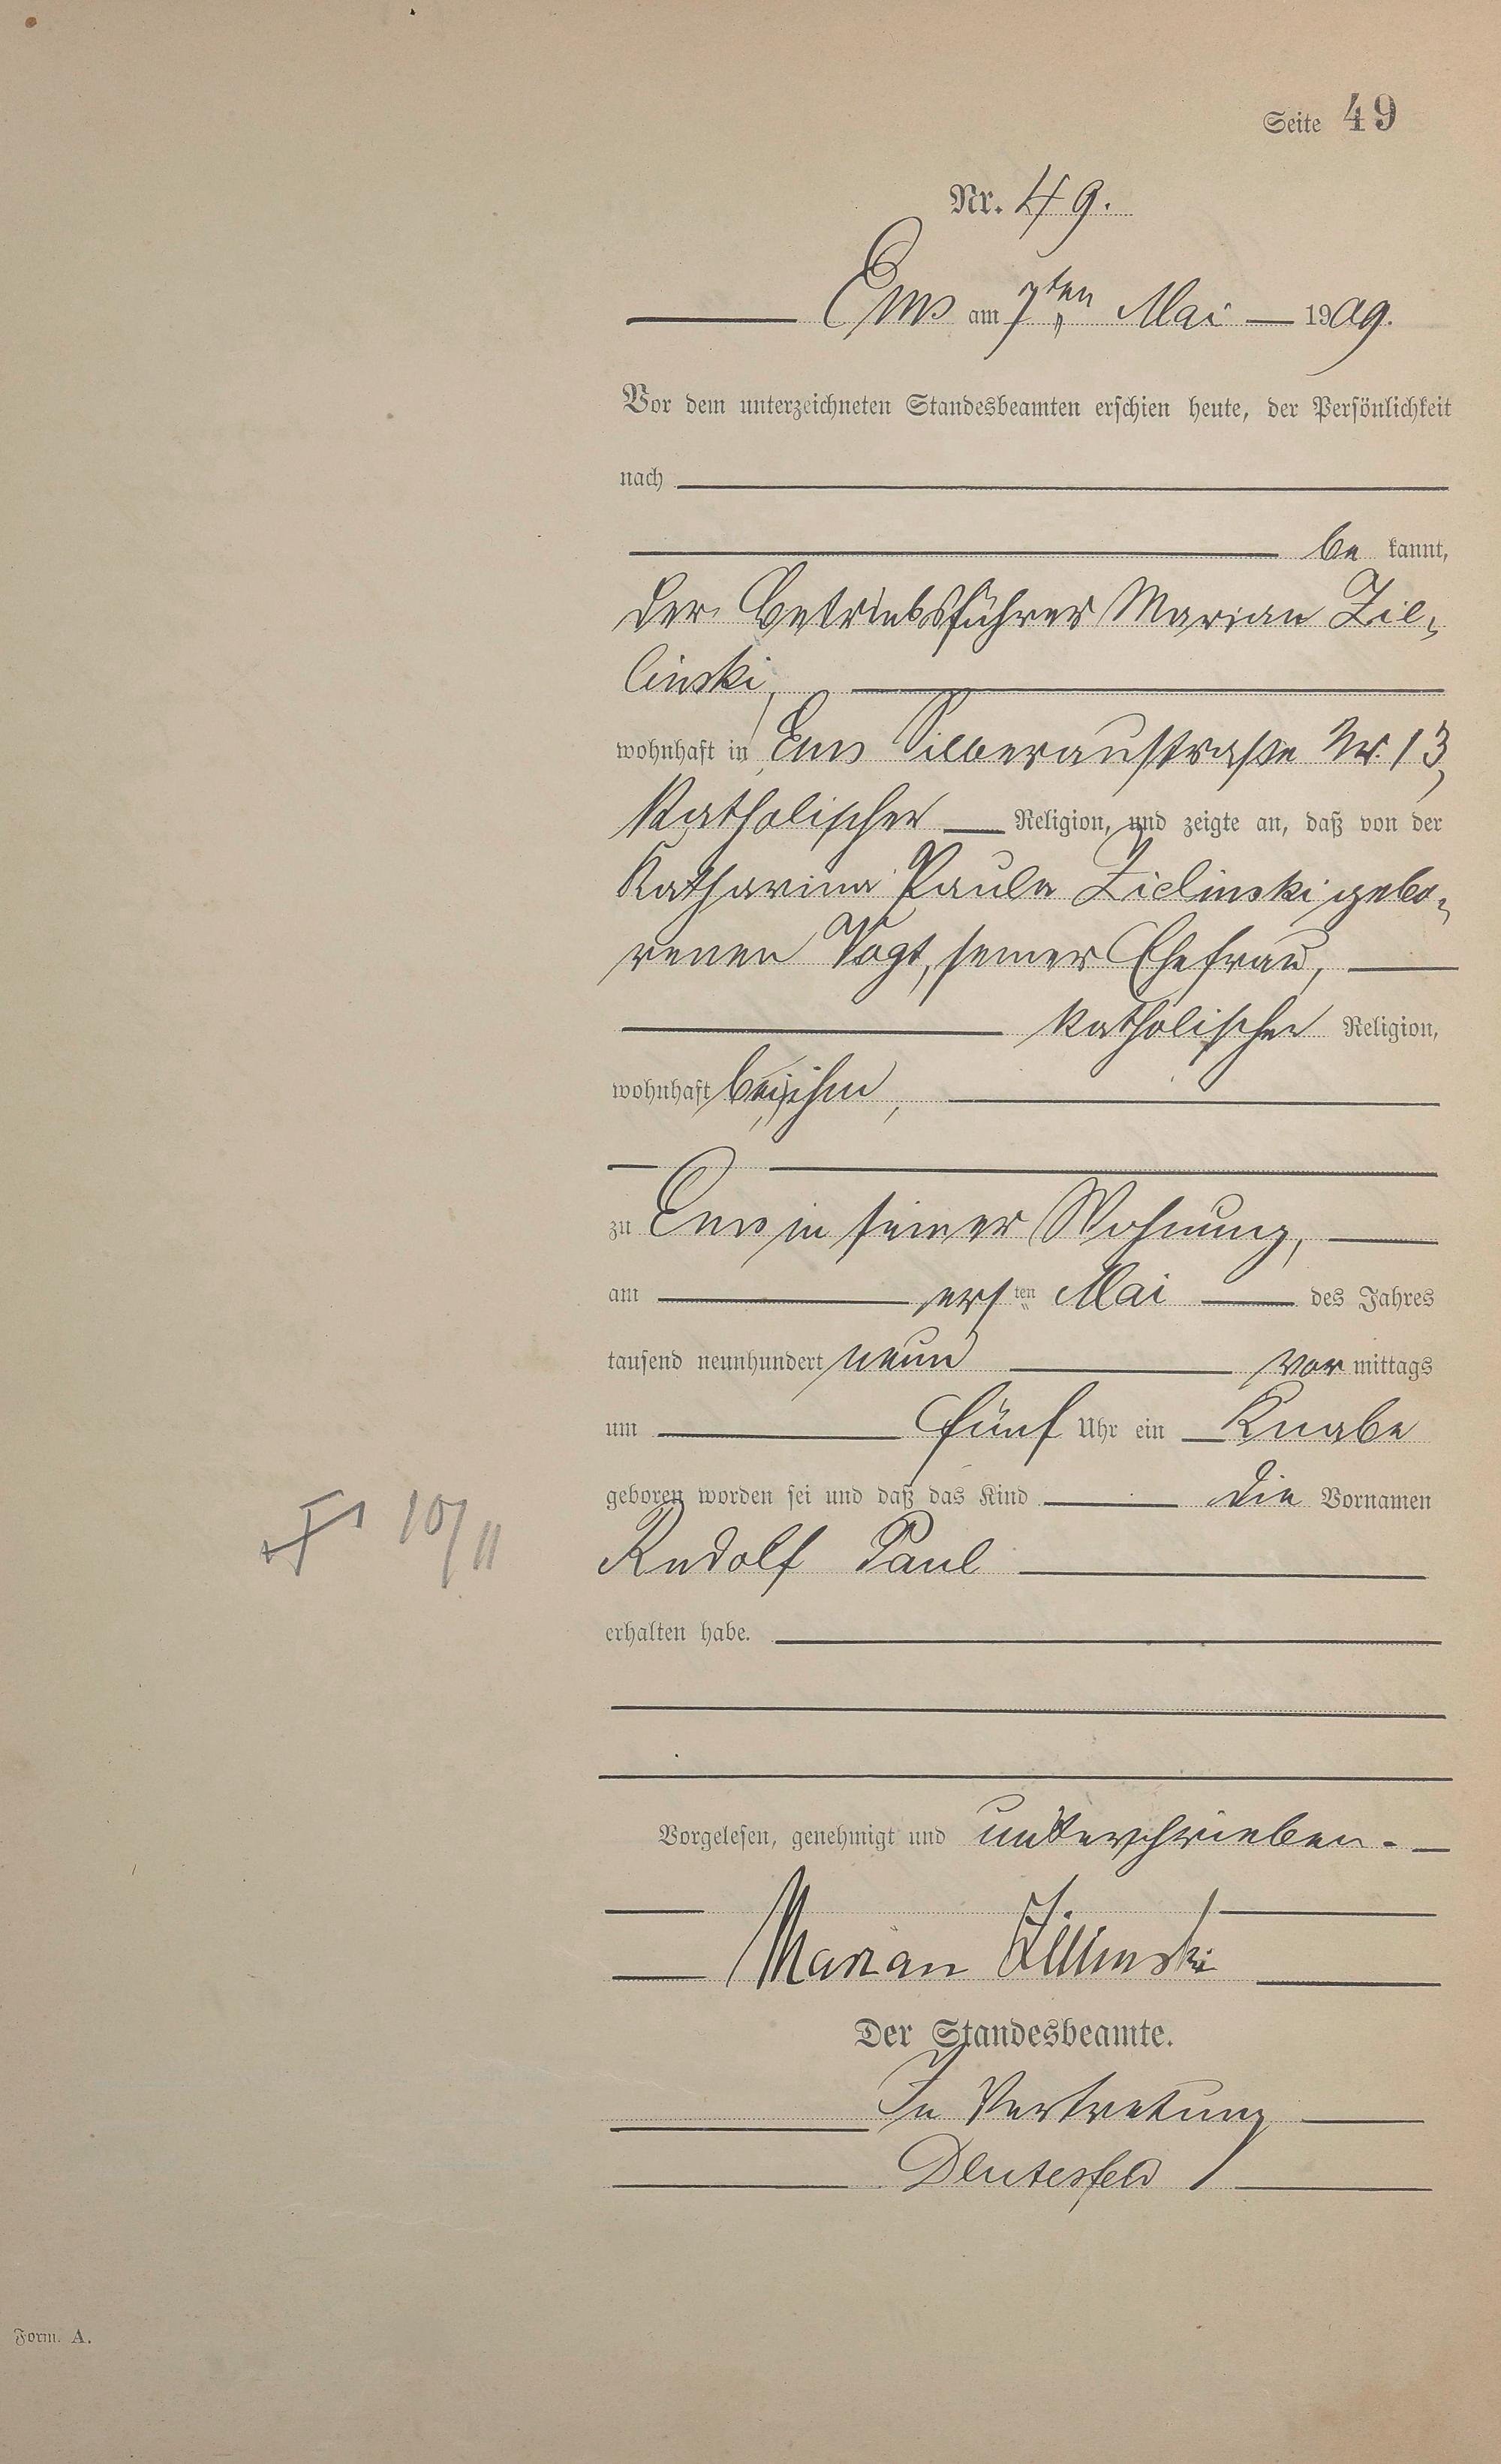 Seite 49
Nr. 49.
Ems am 7ten Mai 1909.
Vor dem unterzeichneten Standesbeamten erschien heute, der Persönlichkeit
nach
be kannt,
der Betriebsführer Marian Zie-
linski,
wohnhaft in Ems Silberaustraße Nr. 13,
katholischer Religion, und zeigte an, daß von der
Katharina Paula Zielinski gebo-
renen Vogt, seiner Ehefrau,
katholischer Religion,
wohnhaft bei ihm,
zu Ems in seiner Wohnung,
am ersten Mai des Jahres
tausend neunhundert neun vor mittags
um fünf Uhr ein Knabe
geboren worden sei und daß das Kind die Vornamen
Rudolf Paul
erhalten habe.
10/11
Vorgelesen, genehmigt und unterschrieben.
Marian Zielinski
Der Standesbeamte.
In Vertretung
Deutesfeld
Form. A.